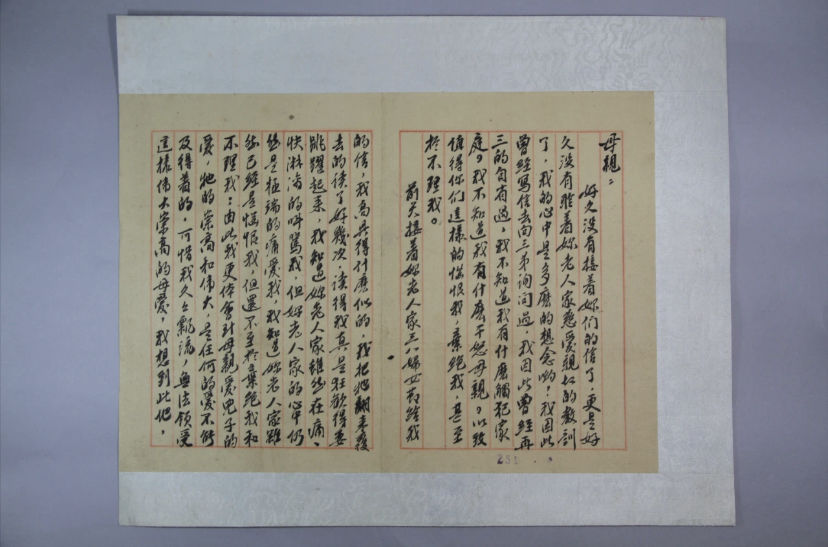 母親：
好久没有接着妳们的信了，更是好
久没有雅着妳老人家慈爱親切的教訓
了，我的心中是多麽的想念哟！我因此
曾經写信去向三弟詢问过，我因此曾經再
三的自省过，我不知道我有什麽觸犯家
庭。我不知道我有什麽干怒母親。以致
值得你们這樣的惱恨我，棄绝我，甚至
於不理我。
前天接着妳老人家三八婦女節给我
的信，我高兴得什麽似的，我把牠翻来覆
去的读了好幾次，读得我真是狂歓得要
跳躍起来，我知道妳老人家雖然在痛、
快淋漓的叫罵我，但妳老人家的心中仍
然是極端的痛爱我，我知道妳老人家雖
然已經是惱恨我，但還不至於棄绝我和
不理我；由此我更体會到母親爱児子的
爱，牠的崇高和偉大，是任何的爱不能
及得着的，可惜我久久飄流，無法領受
這樣偉大崇高的母爱，我想到此地，
231